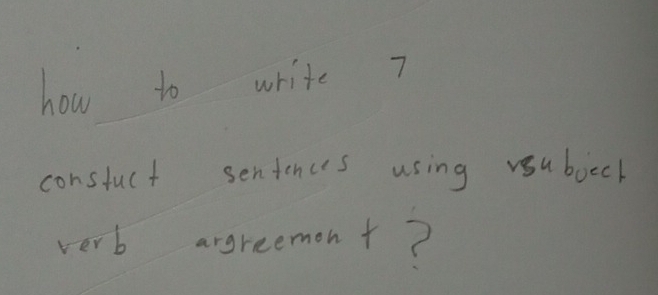 how to write 7
constuct sentences using vsubject
verb argreement ?